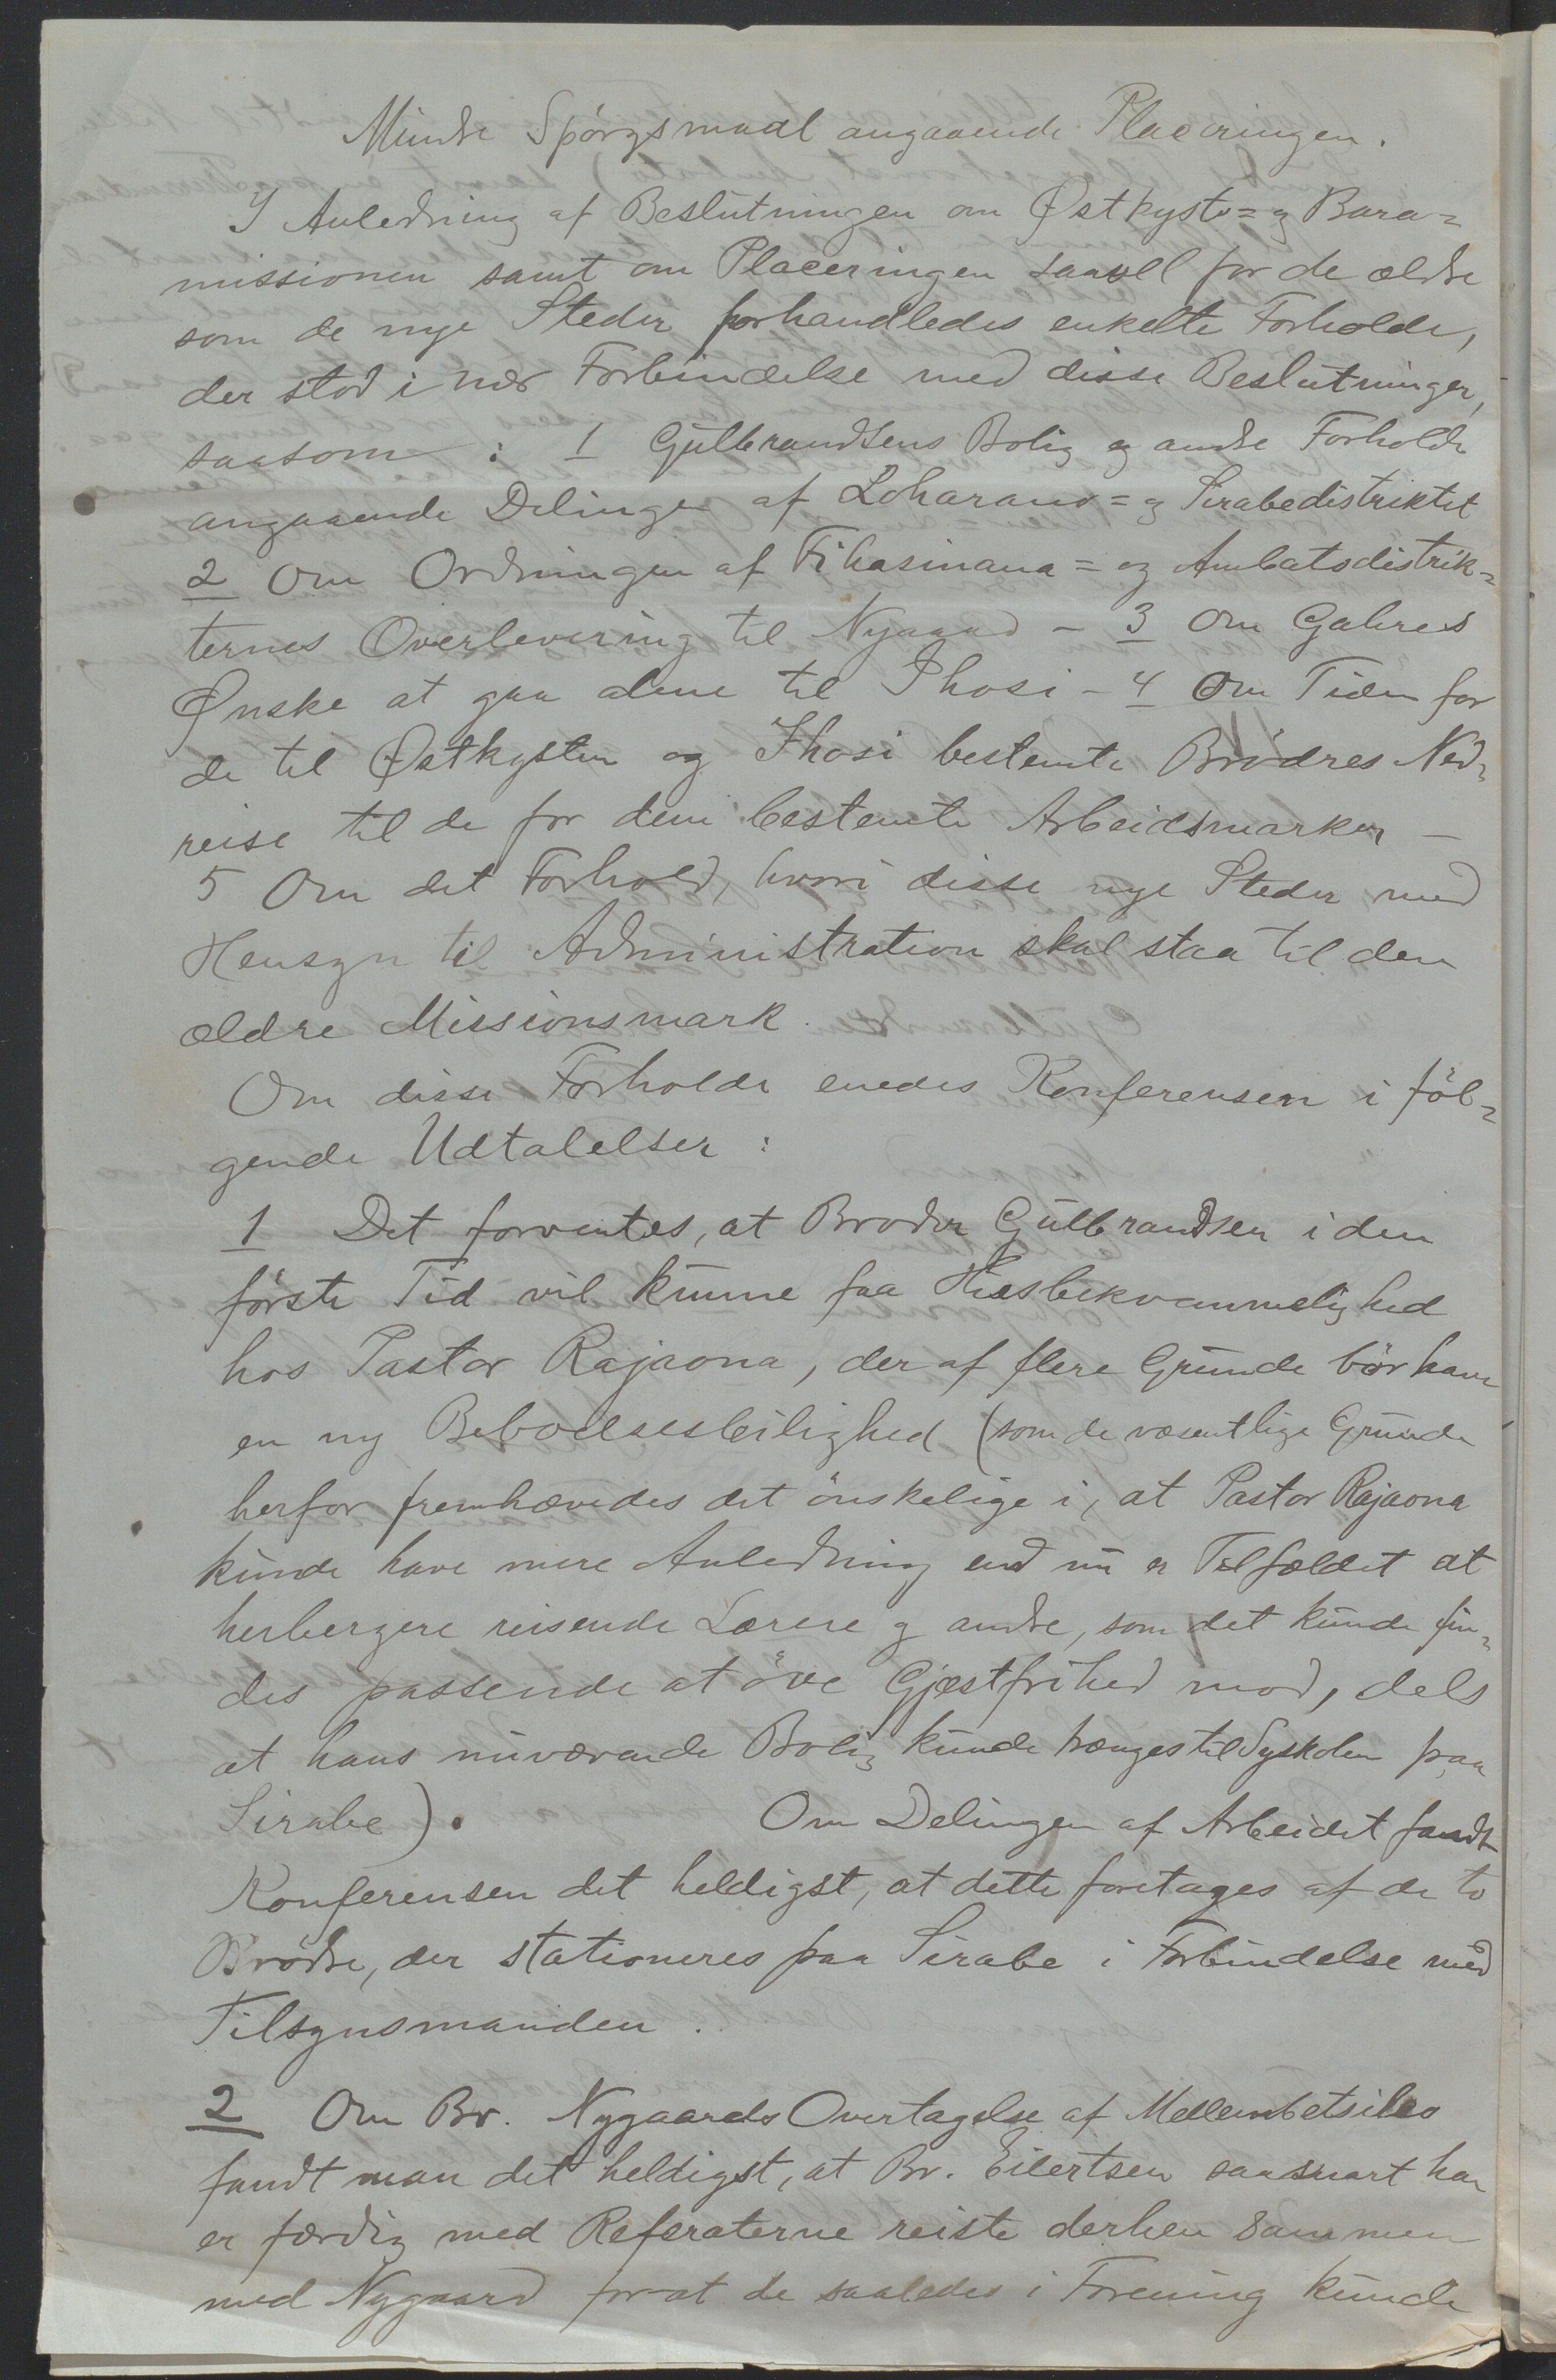 Mindre Spörgsmaal angaaende Placeringen.
I Anledning af Beslutningen om Østkysts= og Bara=
missionen samt om Placeringen saavel for de ældre
som de nye Steder forhandledes enkelte Forholde,
der stod i nær Forbindelse med disse Beslutninger,
saasom : 1 Gulbrandsens Bolig og andre Forholde
angaaende Delingen af Loharano= og Sirabedistriktet
2 Om Ordningen af Fihasinana= og Ambatodistrik=
ternes Overlevering til Nygaard – 3 Om Gahres
Ønske at gaa alene til Ihosi – 4 Om Tiden for
de til Østkysten og Ihosi bestemte Brödres Ned=
reise til de for dem bestemte Arbeidsmarker –
5 Om det Forhold, hvori disse nye Steder med
Hensyn til Administration skal staa til den
ældre Missionsmark.
Om disse Forholde enedes Konferensen i föl=
gende Udtalelser :
1 Det forventes, at Broder Gulbrandsen i den
förste Tid vil kunne faa Husbekvemmelighed
hos Pastor Rajaona, der af flere Grunde bör have
en ny Beboelsesleilighed (som de væsentlige Grunde
herfor fremhævedes det önskelige i, at Pastor Rajaona
kunde have mere Anledning end nu er Tilfældet at
herbergere reisende Lærere og andre, som det kunde fin=
des passende at öve Gjæstfrihed mod, dels
at hans nuværende Bolig kunde trænges til Syskolen paa
Sirabe). Om Delingen af Arbeidet fandt
Konferensen det heldigst, at dette foretages af de to
Brödre, der stationeres paa Sirabe i Forbindelse med
Tilsynsmanden.
2 Om Br. Nygaards Overtagelse af Mellembetsileo
fandt man det heldigst, at Br. Eilertsen saasnart han
er færdig med Referaterne reiste derhen sammen
med Nygaard for at de saaledes i Forening kunde